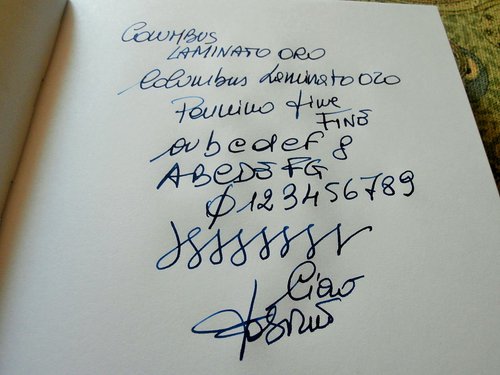 COLUMBUS
LAMINATO ORO
Columbus Laminato oro
Pennino fine
FINE
abcdef g
ABCDEFG
0123456789
Ciao